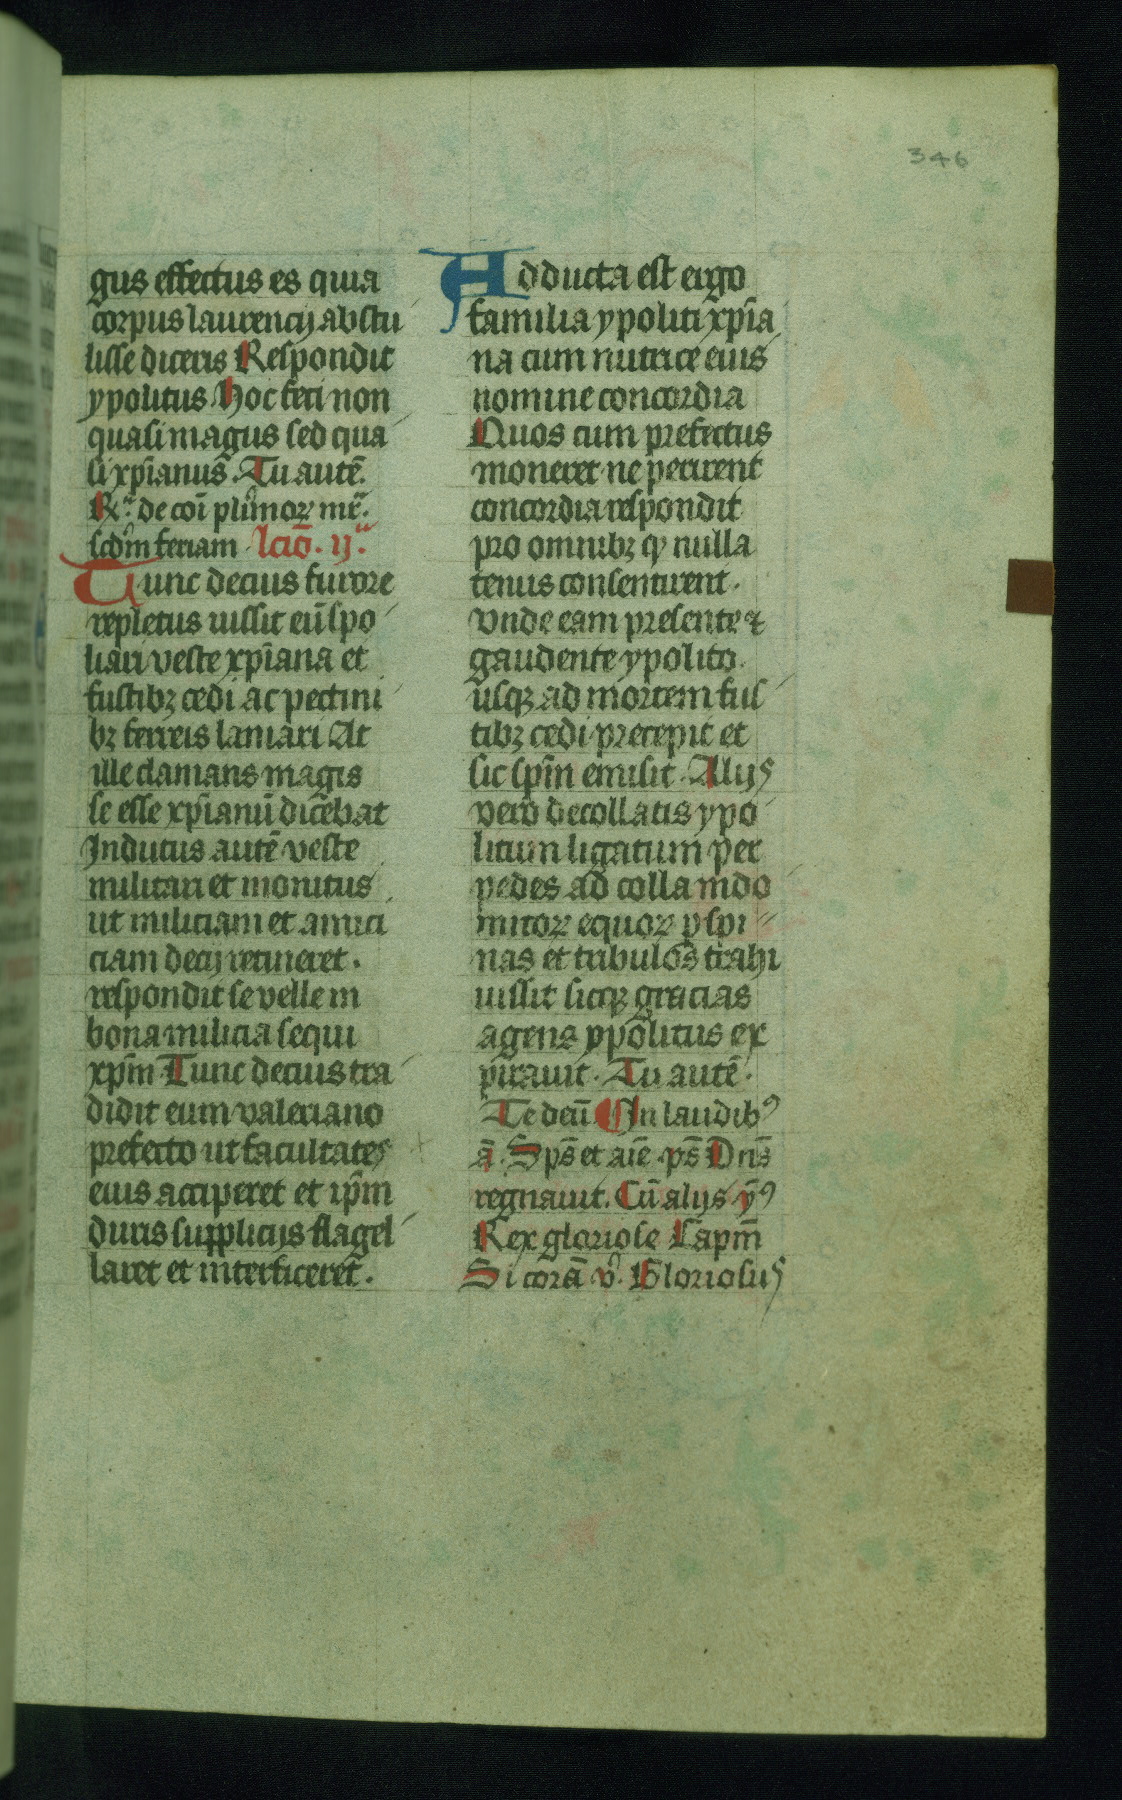 346
gus effectus es quia
corpus laurencij abstu
lisse diceris Respondit
ypolitus Hoc feci non
quasi magus sed qua
si xp̄ianus. Tu autē.
R̃. de cōi plimoꝝ mr̄.
scd̄m feriam lcio. ij.
Tunc decius furore
repletus iussit eū spo
liari veste xp̄iana et
fustibꝫ cedi ac pectini
bꝫ ferreis laniari At
ille clamans magis
se esse xp̄ianū dicebat
Indutus autē veste
militari et monitus
ut miliciam et amici
ciam decij retineret.
respondit se velle in
bona milicia sequi
xp̄m Tunc decius tra
didit eum valeriano
prefecto ut facultates
eius acciperet et ip̄m
duris supplicijs flagel
laret et interficeret.
Adducta est ergo
familia ypoliti xp̄ia
na cum nutrice eius
nomine concordia
Quos cum prefectus
moneret ne perirent
concordia respondit
pro omnibꝫ qꝫ nulla
tenus consentirent.
vnde eam presente ⁊
gaudente ypolito.
usqꝫ ad mortem fus
tibꝫ cedi precepit et
sic sp̄m emisit. Alijs
vero decollatis ypo
litum ligatum per
pedes ad colla indo
mitoꝝ equoꝝ ꝑ spi
nas et tribulos trahi
iussit sicqꝫ gracias
agens ypolitus ex
pirauit. Tu autē.
Te deū ¶ In laudibꝰ
ā. Sp̄s et aīe. ps̄ Dn̄s
regnauit. Cū alijs. ȳꝰ
Rex gloriose Capm̄
Si corā v̊. Gloriosus